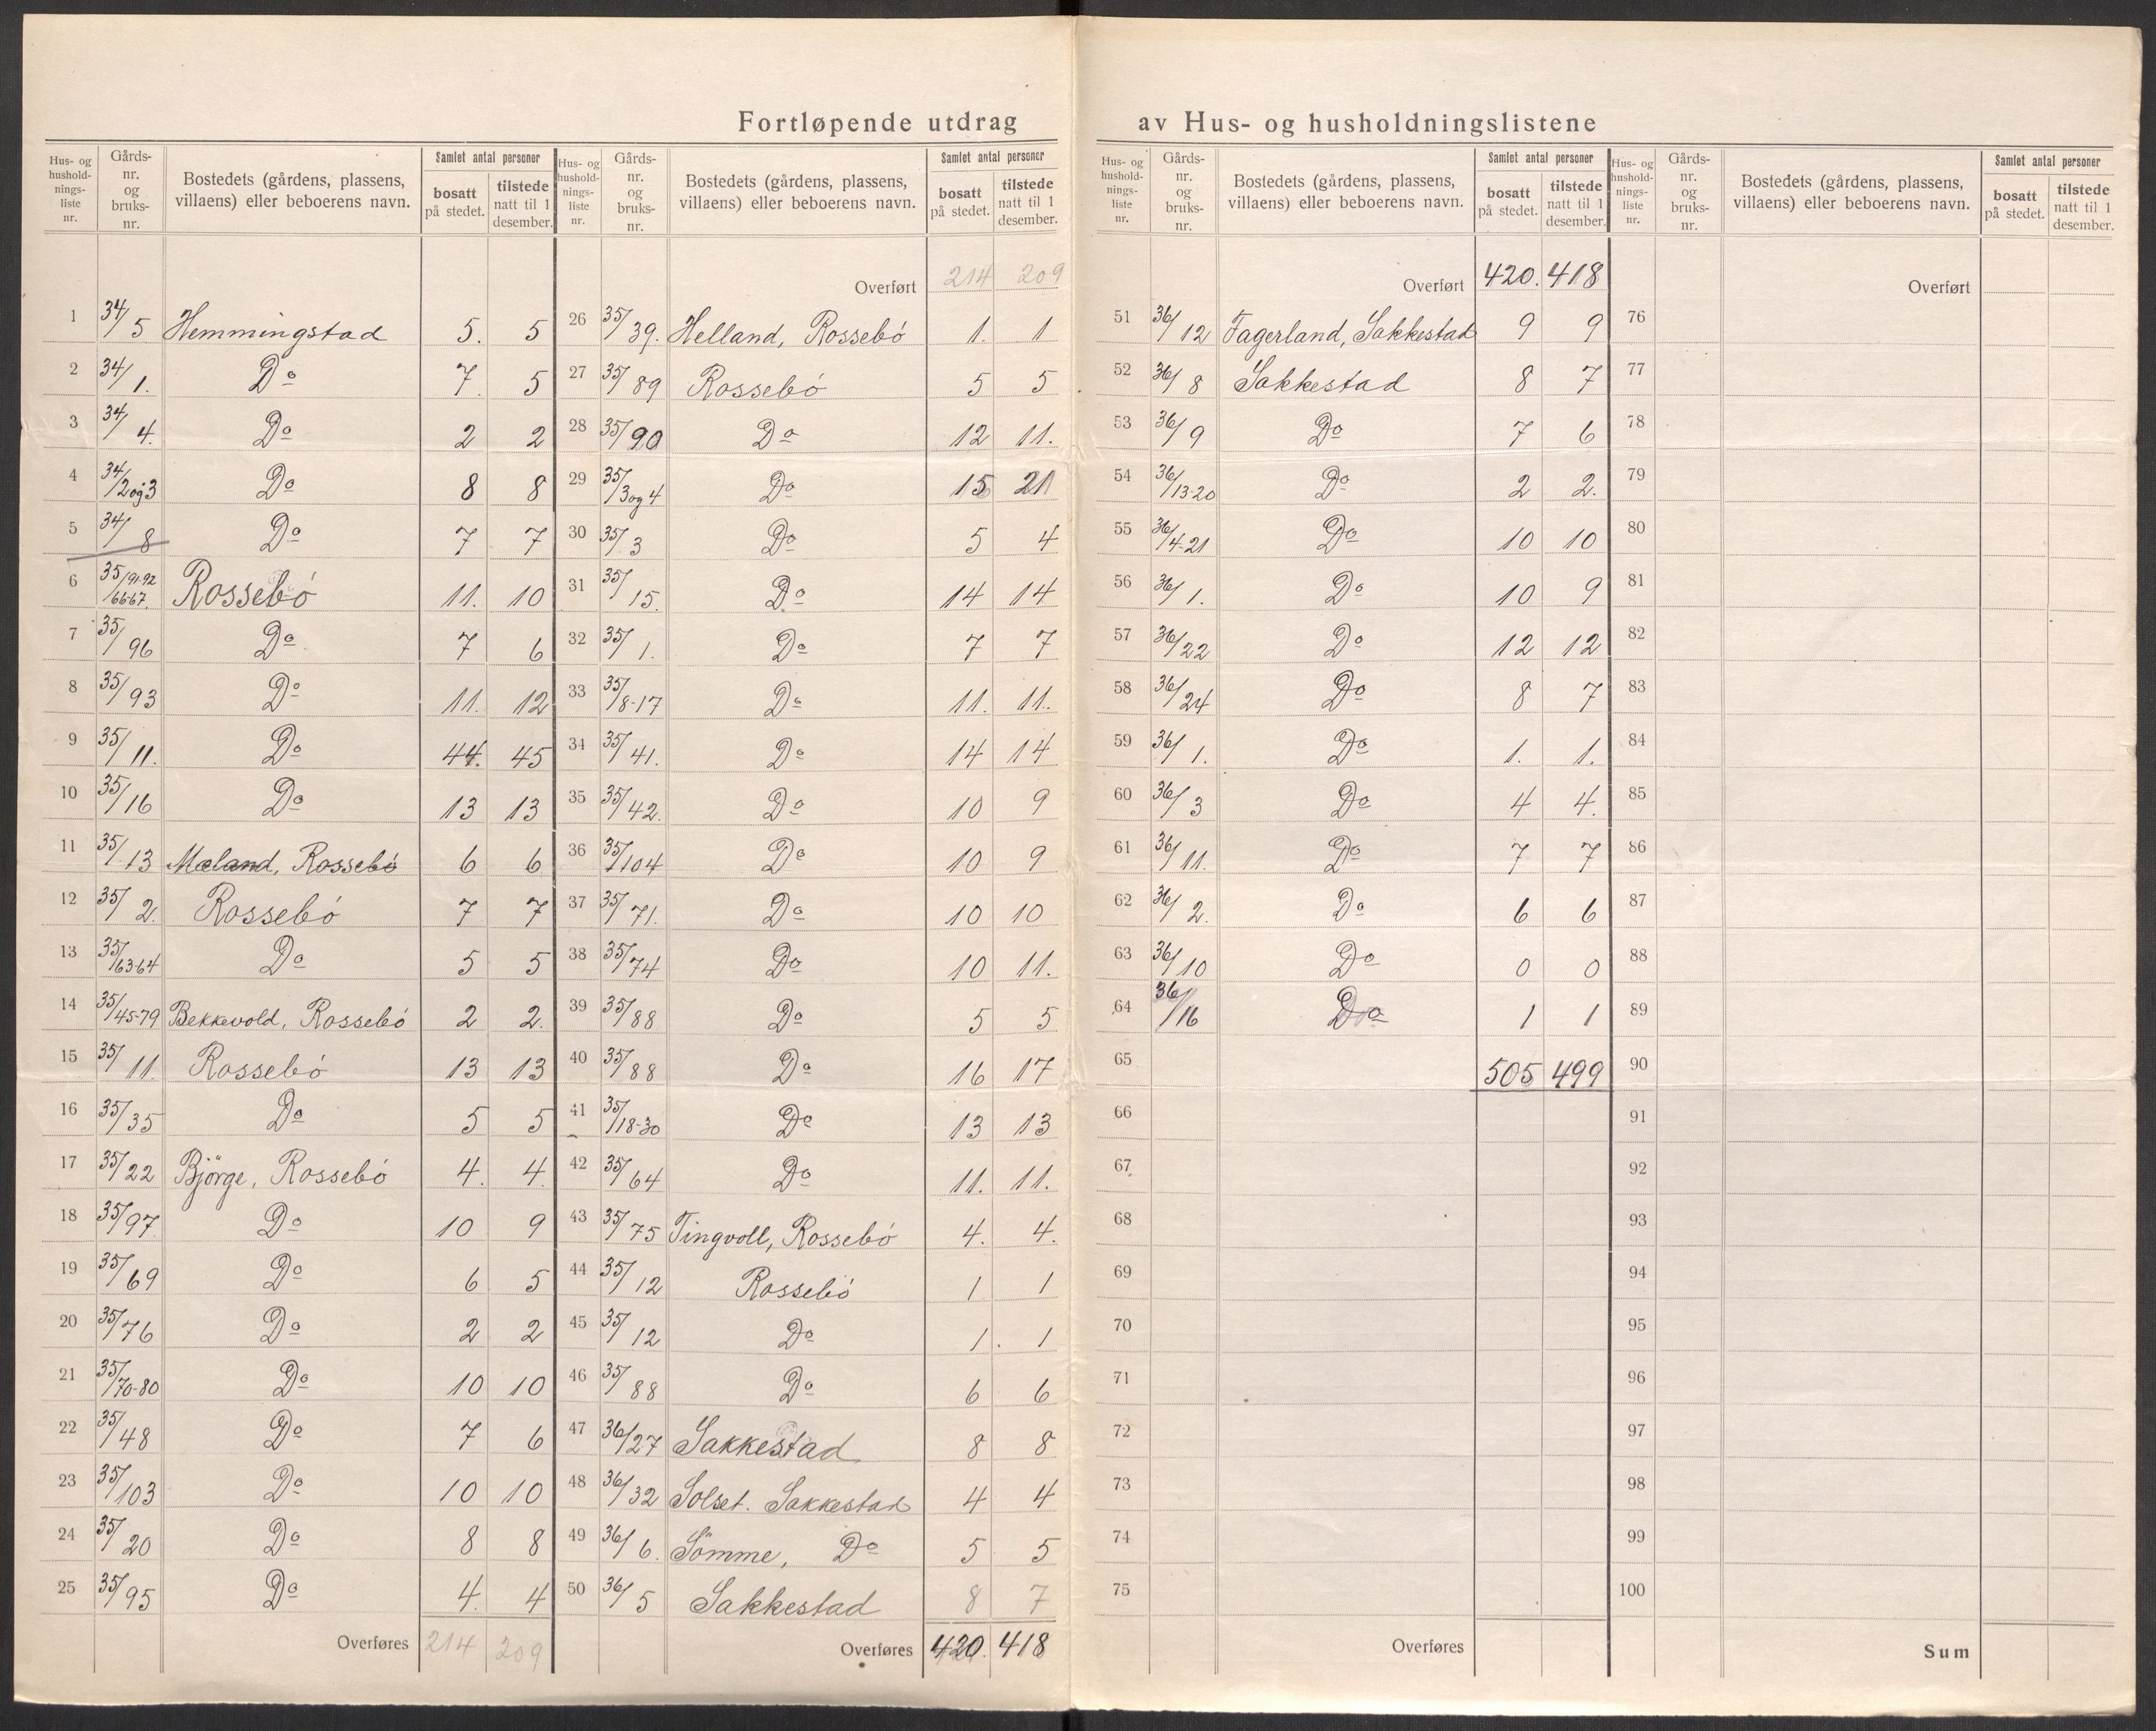 Fortløpende utdrag av Hus- og husholdningslistene
Hus- og hushold-nings-liste nr. Gårds-nr. og bruks-nr. Bostedets (gårdens, plassens, villaens) eller beboerens navn. Samlet antal personer bosatt på stedet. tilstede natt til 1 desember.
1 34/5 Hemmingstad 5. 5
2 34/1. Do 7. 5
3 34/4. Do 2 2
4 34/2og3 Do 8 8
5 34/8 Do 7 7
6 35/91-92 /66-67. Rossebö 11. 10
7 35/96 Do 7 6
8 35/93 Do 11. 12
9 35/11. Do 44. 45
10 35/16 Do 13 13
11 35/13 Mæland, Rossebö 6 6
12 35/2. Rossebö 7 7
13 35/63-64 Do 5 5
14 35/45-79 Bekkevold, Rossebö 2 2.
15 35/11. Rossebö 13 13
16 35/35 Do 5 5
17 35/22 Björge, Rossebö 4. 4.
18 35/97. Do 10 9
19 35/69 Do 6 5
20 35/76 Do 2 2
21 35/70-80 Do 10 10
22 35/48 Do 7 6
23 35/103 Do 10 10
24 35/20 Do 8 8
25 35/95 Do 4. 4
Overføres 214 209
Hus- og hushold-nings-liste nr. Gårds-nr. og bruks-nr. Bostedets (gårdens, plassens, villaens) eller beboerens navn. Samlet antal personer bosatt på stedet. tilstede natt til 1 desember.
Overført 214 209
26 35/39. Helland, Rossebö 1. 1
27 35/89 Rossebö 5 5
28 35/90 Do 12 11.
29 35/3og4 Do 15 21
30 35/3 Do 5 4
31 35/15. Do 14 14
32 35/1. Do 7 7
33 35/8-17 Do 11. 11.
34 35/41. Do 14 14
35 35/42. Do 10 9
36 35/104 Do 10 9
37 35/71. Do 10 10
38 35/74 Do 10 11.
39 35/88 Do 5 5
40 35/88 Do 16 17
41 35/18-30 Do 13 13
42 35/64 Do 11. 11.
43 35/75 Tingvoll, Rossebö 4. 4.
44 35/12 Rossebö 1 1
45 35/12 Do 1. 1
46 35/88 Do 6 6
47 36/27 Sakkestad 8 8
48 36/32 Solset. Sakkestad 4 4
49 36/6. Sömme, Do 5 5
50 36/5 Sakkestad 8 7
Overføres 420. 418
Hus- og hushold-nings-liste nr. Gårds-nr. og bruks-nr. Bostedets (gårdens, plassens, villaens) eller beboerens navn. Samlet antal personer bosatt på stedet. tilstede natt til 1 desember.
Overført 420. 418
51 36/12 Fagerland, Sakkestad 9 9
52 36/8 Sakkestad 8 7
53 36/9 Do 7 6
54 36/13-20 Do 2 2.
55 36/4-21 Do 10 10
56 36/1. Do 10 9
57 36/22 Do 12 12
58 36/24 Do 8 7
59 36/1. Do 1. 1.
60 36/3 Do 4 4.
61 36/11. Do 7 7
62 36/2. Do 6 6
63 36/10 Do 0 0
64 36/16 Do 1 1
65 505 499
66
67
68
69
70
71
72
73
74
75
Overføres
Hus- og hushold-nings-liste nr. Gårds-nr. og bruks-nr. Bostedets (gårdens, plassens, villaens) eller beboerens navn. Samlet antal personer bosatt på stedet. tilstede natt til 1 desember.
Overført
76
77
78
79
80
81
82
83
84
85
86
87
88
89
90
91
92
93
94
95
96
97
98
99
100
Sum